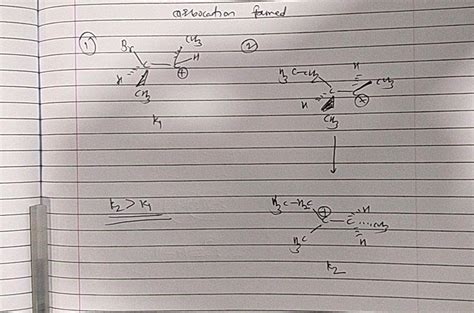 carbocation formed
① ②
Br CH3 H
C C ⊕
H CH3
K1
H3C-CH2 H CH3
C C ⊕
H CH3
K2 > K1
H3C-H2C ⊕ H
C C CH3
H3C H
K2